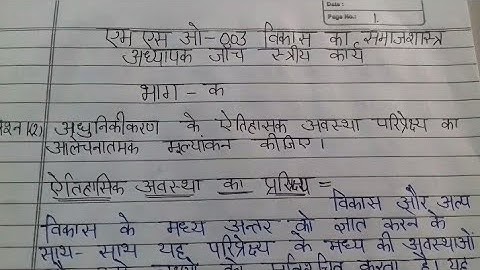 Date :
Page No.: 1.
एम एस ओ-003 विकास का समाजशास्त्र
अध्यापक जाँच स्त्रीय कार्य
भाग - क
प्रश्न 1(2) आधुनिकीकरण के ऐतिहासक अवस्था परिप्रेक्ष्य का
आलचनातमक मूल्यांकन कीजिए।
ऐतिहासिक अवस्था का =
विकास और अल्प
विकास के मध्य अन्तर को ज्ञात करने के
साथ- साथ यह परिप्रेक्ष्य के मध्य की अवस्थाओं
करता है। यह